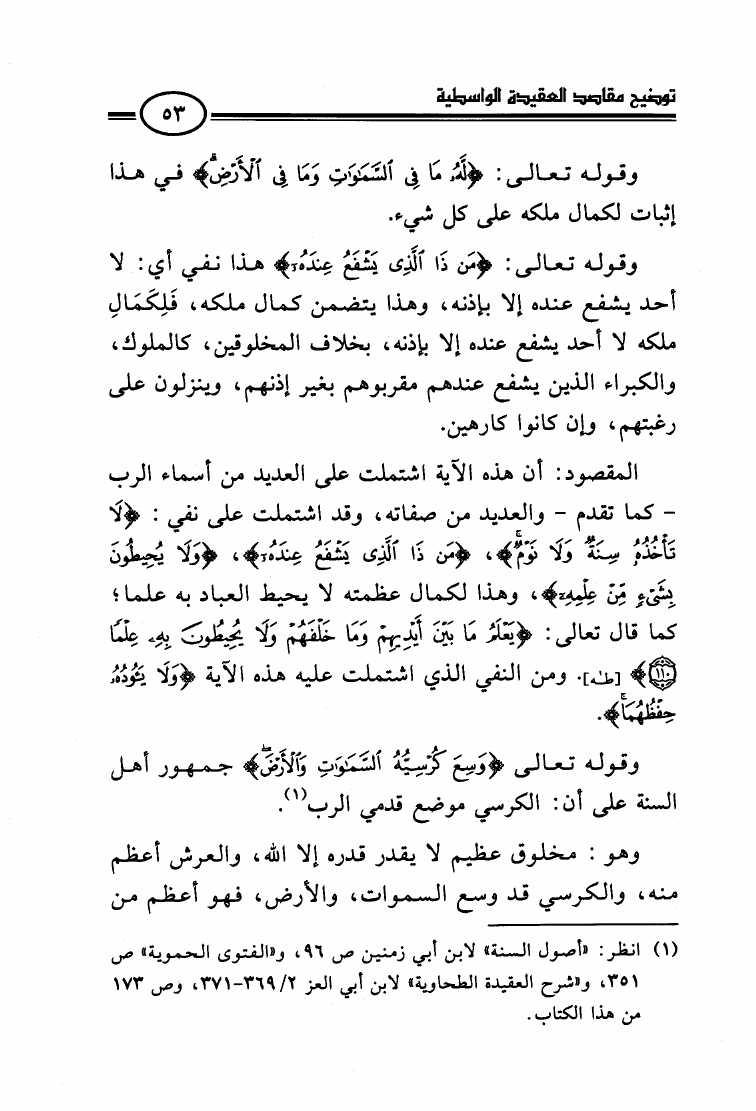 توضيح مقاصد العقيدة الواسطية
٥٣
وقوله تعالى: ﴿لَّهُۥ مَا فِى ٱلسَّمَٰوَٰتِ وَمَا فِى ٱلْأَرْضِۗ﴾ في هذا
إثبات لكمال ملكه على كل شيء.
وقوله تعالى: ﴿مَن ذَا ٱلَّذِى يَشْفَعُ عِندَهُۥٓ﴾ هذا نفي أي: لا
أحد يشفع عنده إلا بإذنه، وهذا يتضمن كمال ملكه، فَلِكَمَالِ
ملكه لا أحد يشفع عنده إلا بإذنه، بخلاف المخلوقين، كالملوك،
والكبراء الذين يشفع عندهم مقربوهم بغير إذنهم، وينزلون على
رغبتهم، وإن كانوا كارهين.
المقصود: أن هذه الآية اشتملت على العديد من أسماء الرب
- كما تقدم - والعديد من صفاته، وقد اشتملت على نفي: ﴿لَا
تَأْخُذُهُۥ سِنَةٌ وَلَا نَوْمٌۚ﴾، ﴿مَن ذَا ٱلَّذِى يَشْفَعُ عِندَهُۥٓ﴾، ﴿وَلَا يُحِيطُونَ
بِشَىْءٍ مِّنْ عِلْمِهِۦٓ﴾، وهذا لكمال عظمته لا يحيط العباد به علما؛
كما قال تعالى: ﴿يَعْلَمُ مَا بَيْنَ أَيْدِيهِمْ وَمَا خَلْفَهُمْ وَلَا يُحِيطُونَ بِهِۦ عِلْمًا
﴿١١٠﴾﴾ [طه]. ومن النفي الذي اشتملت عليه هذه الآية ﴿وَلَا يَـُٔودُهُۥ
حِفْظُهُمَاۚ﴾.
وقوله تعالى ﴿وَسِعَ كُرْسِيُّهُ ٱلسَّمَٰوَٰتِ وَٱلْأَرْضَۖ﴾ جمهور أهل
السنة على أن: الكرسي موضع قدمي الرب(١).
وهو: مخلوق عظيم لا يقدر قدره إلا الله، والعرش أعظم
منه، والكرسي قد وسع السموات، والأرض، فهو أعظم من
(١) انظر: «أصول السنة» لابن أبي زمنين ص ٩٦، و«الفتوى الحموية» ص
٣٥١، و«شرح العقيدة الطحاوية» لابن أبي العز ٢/ ٣٦٩-٣٧١، وص ١٧٣
من هذا الكتاب.